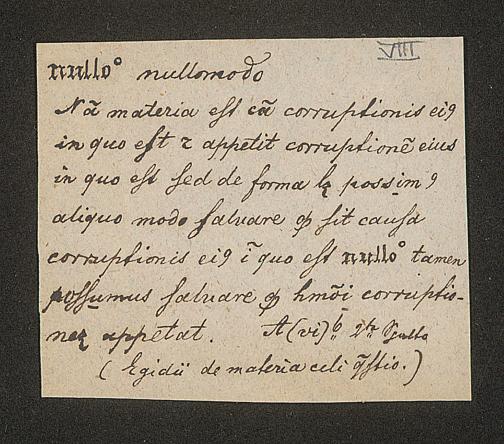 VIII
nullo° nullomodo
Nā materia est cā corruptionis eiꝰ
in quo est ⁊ appetit corruptionē eius
in quo est sed de forma lꝫ possimꝰ
aliquo modo saluare ꝙ sit causa
corruptionis eiꝰ ī quo est nullo° tamen
possumus saluare ꝙ hmōi corruptio-
neꝫ appetat. A(vi)
(Egidii de materia celi q̄stio.)